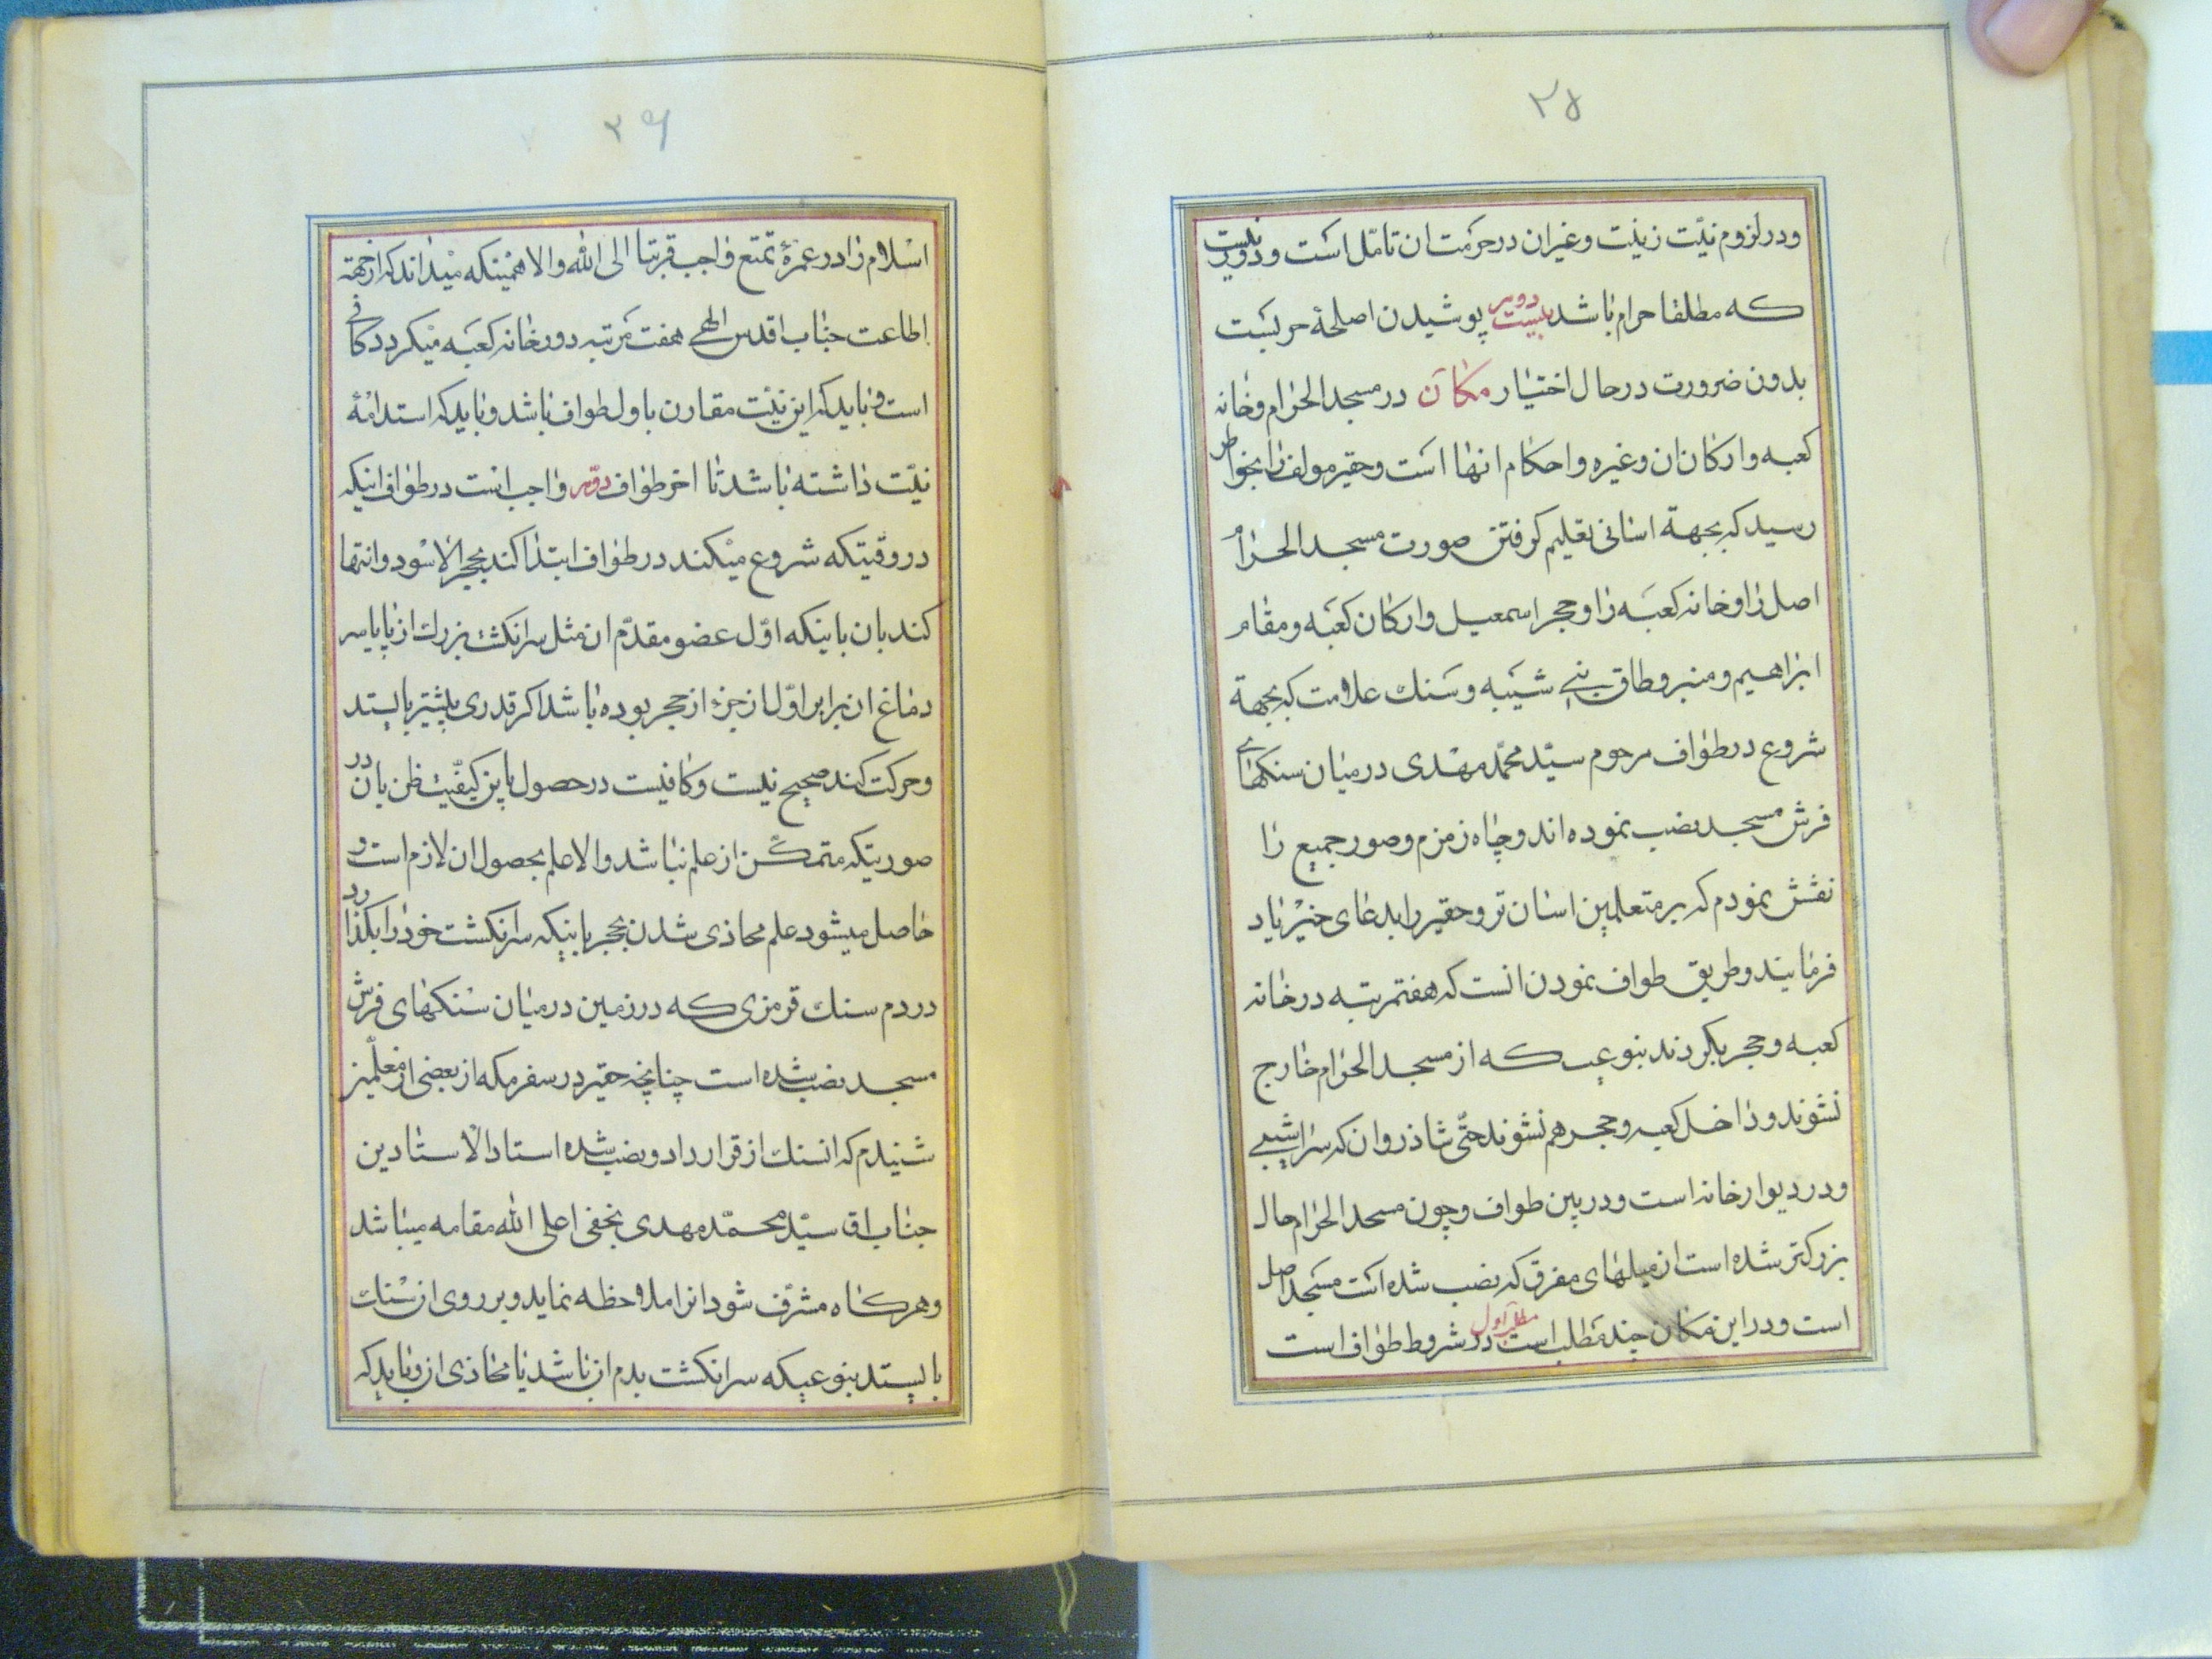 ۲۵
و در لزوم نیّت زینت و غیر ان در حرمت ان تامّل است و دور نیست
که مطلقا حرام باشد بیست دویم پوشیدن اصلحهٔ حربست
بدون ضرورت در حال اختیار مکان در مسجد الحرام و خانه
کعبه و ارکان ان و غیره و احکام انها است و حقیر مولف را بخواطر
رسید که بجهة اسانی تعلیم کرفتن صورت مسجد الحرام
اصل را و خانه کعبه را و حجر اسمعیل و ارکان کعبه و مقام
ابراهیم و منبر و طاق بنی شیبه و سنک علامت که بجهة
شروع در طواف مرحوم سیّد محمّد مهدی در میان سنکهای
فرش مسجد نصب نموده اند و چاه زمزم و صور جمیع را
نقش نمودم که بر متعلمین اسان تر و حقیر را بدعای خیر یاد
فرمایند و طریق طواف نمودن انست که هفتمرتبه در خانه
کعبه و حجر بکردند بنوعی که از مسجد الحرام خارج
نشوند و داخل کعبه و حجر هم نشوند حتّی شاذروان که سراشیبی
و در دیوار خانه است و در بین طواف و چون مسجد الحرام حال
بزرکتر شده است از میلهای مفرق که نصب شده است مسجد اصل
است و در این مکان چند مطلب است مطلب اول در شروط طواف است
۲۶
اسلام را در عمرهٔ تمتع واجب قربتا الی الله و الا همینکه میداند که از جهة
اطاعت جناب اقدس الهی هفت مرتبه دور خانه کعبه میکردد کافی
است و باید که این نیّت مقارن باول طواف باشد و باید که استدامهٔ
نیّت داشته باشد تا اخر طواف دوّیم واجب است در طواف اینکه
در وقتیکه شروع میکند در طواف ابتدا کند بحجر الاسود و انتها
کند بان باینکه اوّل عضو مقدّم ان مثل سر انکشت بزرک از پا یا سر
دماغ ان برابر اوّل از جزء از حجر بوده باشد اکر قدری پیشتر بایستد
و حرکت کند صحیح نیست و کافیست در حصول باین کیفیّت ظن بان در
صورتیکه متمکّن از علم نباشد و الا علم بحصول ان لازم است و
حاصل میشود علم محاذی شدن بحجر باینکه سر انکشت خود را بکذارد
در دم سنک قرمزی که در زمین در میان سنکهای فرش
مسجد نصب شده است چنانچه حقیر در سفر مکه از بعضی از معلّمین
شنیدم که انسنک از قرار داد و نصب شده استاد الاستادین
جناب اق سیّد محمّد مهدی نجفی اعلی الله مقامه میباشد
و هر کاه مشرّف شود انرا ملاحظه نماید و بر روی ان سنک
بایستد بنوعیکه سر انکشت بدم ان باشد یا محاذی ان و باید که